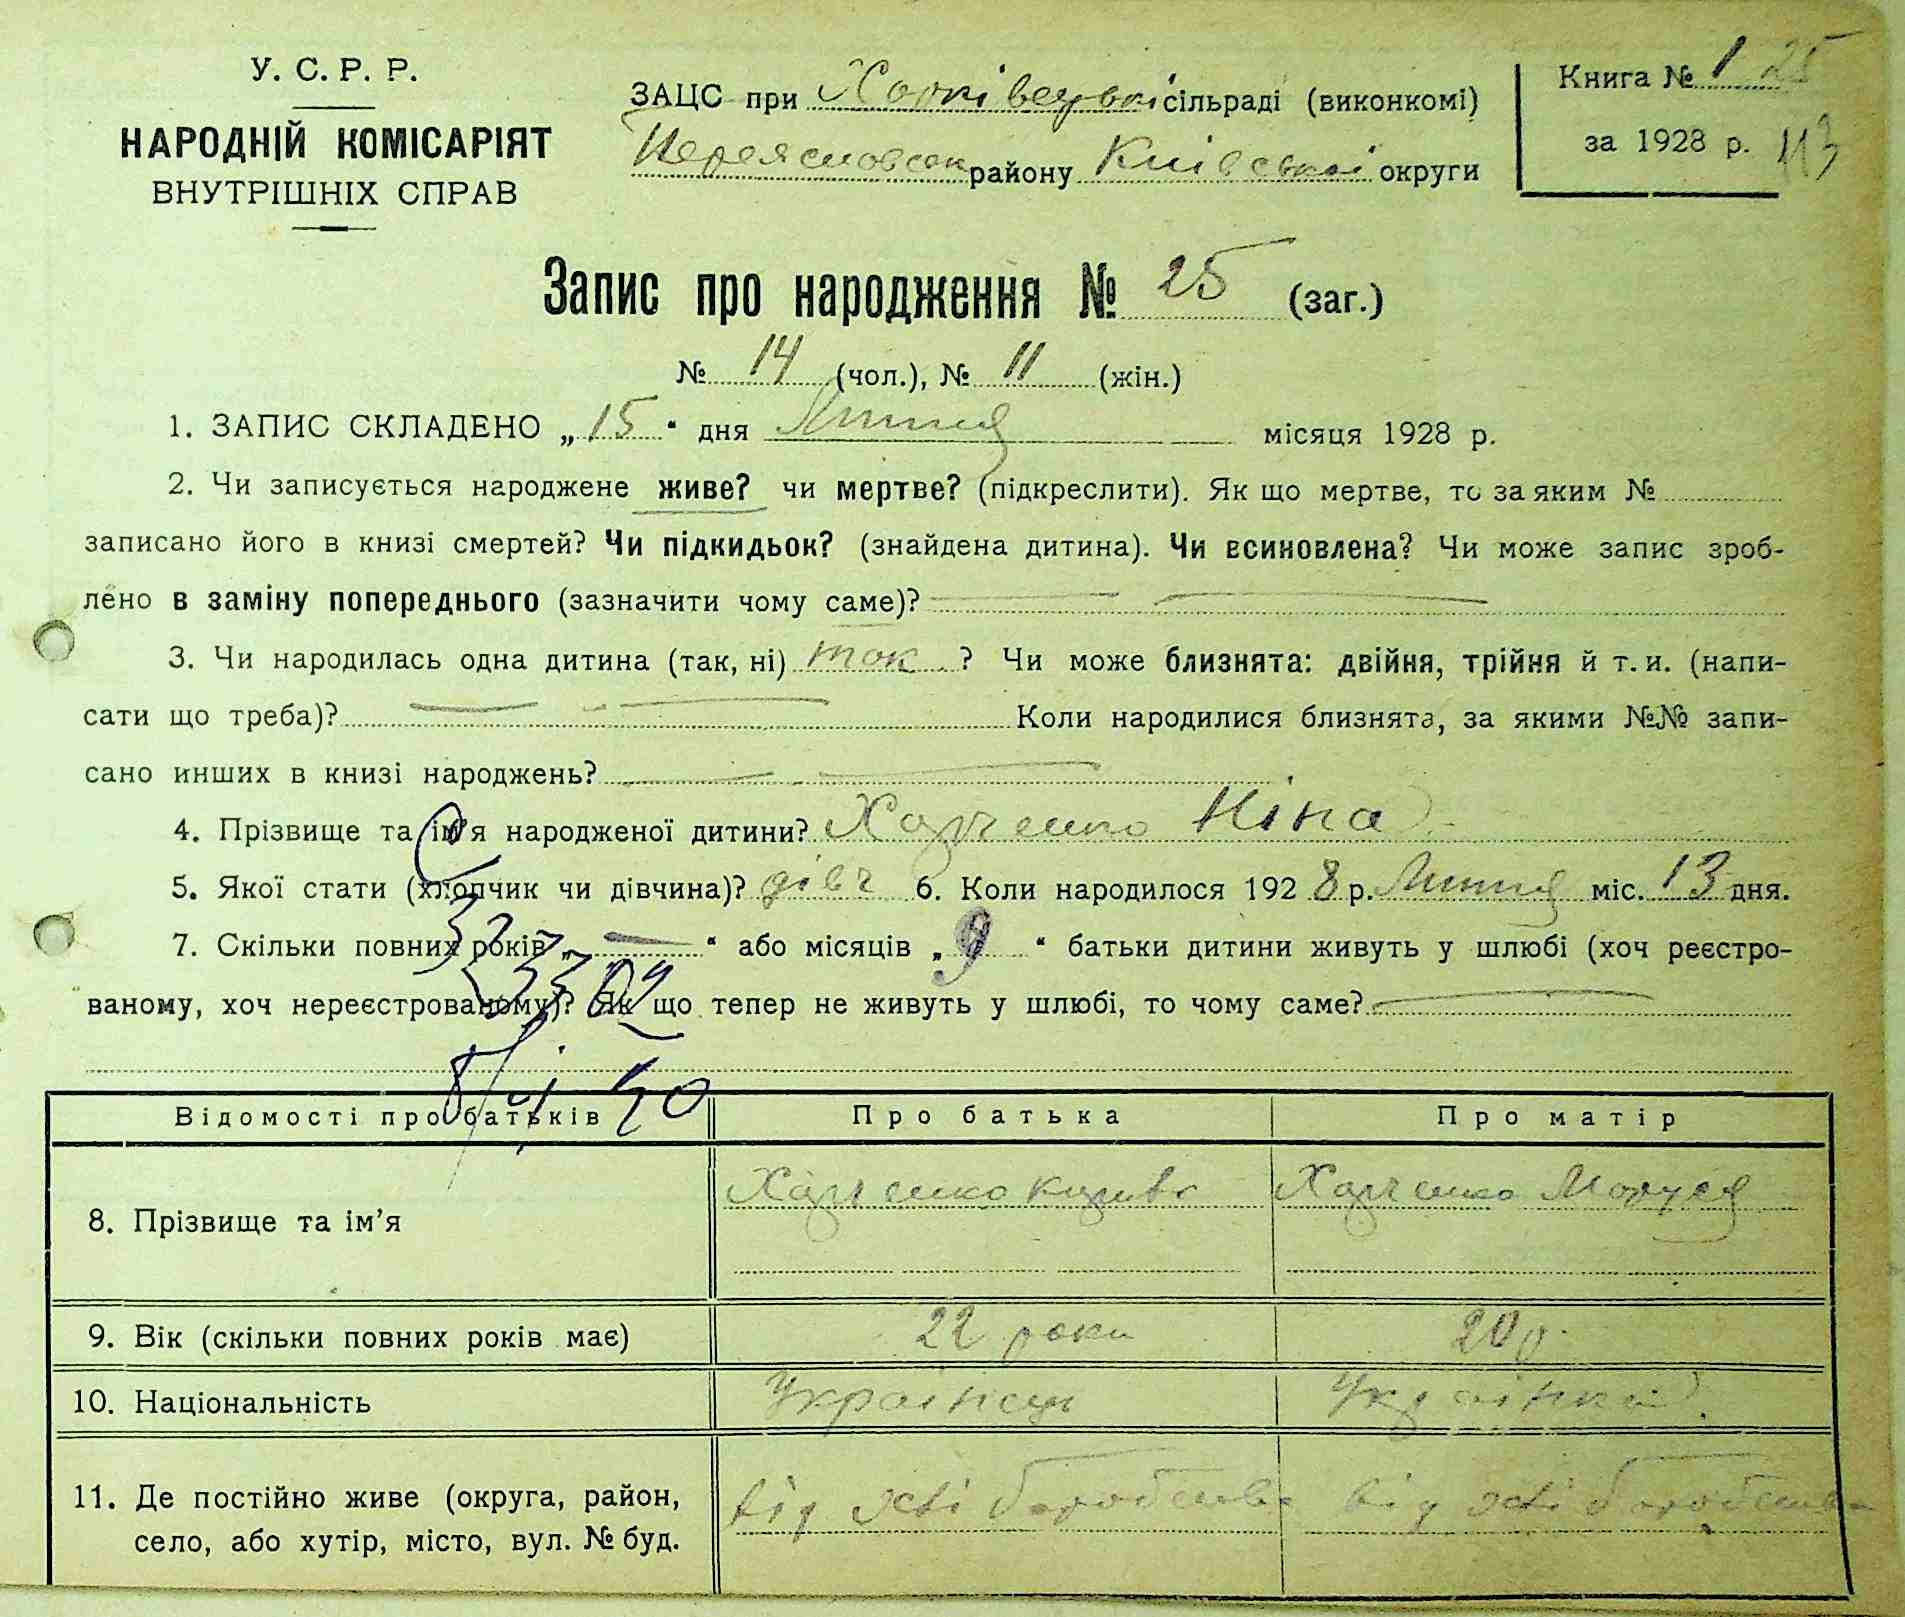 У. С. Р. Р.
НАРОДНІЙ КОМІСАРІЯТ
ВНУТРІШНІХ СПРАВ
ЗАЦС при Харківецькі сільраді (виконкомі)
Переяславськ району Київської округи
Книга № 1 25
за 1928 р. 113
Запис про народження № 25 (заг.)
№ 14 (чол.), № 11 (жін.)
1. ЗАПИС СКЛАДЕНО „15“ дня Липня місяця 1928 р.
2. Чи записується народжене живе? чи мертве? (підкреслити). Як що мертве, то за яким №
записано його в книзі смертей? Чи підкидьок? (знайдена дитина). Чи всиновлена? Чи може запис зроб-
лено в заміну попереднього (зазначити чому саме)? — —
3. Чи народилась одна дитина (так, ні) так ? Чи може близнята: двійня, трійня й т. и. (напи-
сати що треба)? — — Коли народилися близнята, за якими №№ запи-
сано инших в книзі народжень? — —
4. Прізвище та ім'я народженої дитини? Харченко Ніна
5. Якої стати (хлопчик чи дівчина)? дівч 6. Коли народилося 1928 р. Липня міс. 13 дня.
7. Скільки повних років „—“ або місяців „9“ батьки дитини живуть у шлюбі (хоч реєстро-
ваному, хоч нереєстрованому)? Як що тепер не живуть у шлюбі, то чому саме? —
Відомості про батьків Про батька Про матір
8. Прізвище та ім'я Харченко Харченко Маруся
9. Вік (скільки повних років має) 22 роки 20 р.
10. Національність Українець Українка
11. Де постійно живе (округа, район,
село, або хутір, місто, вул. № буд.